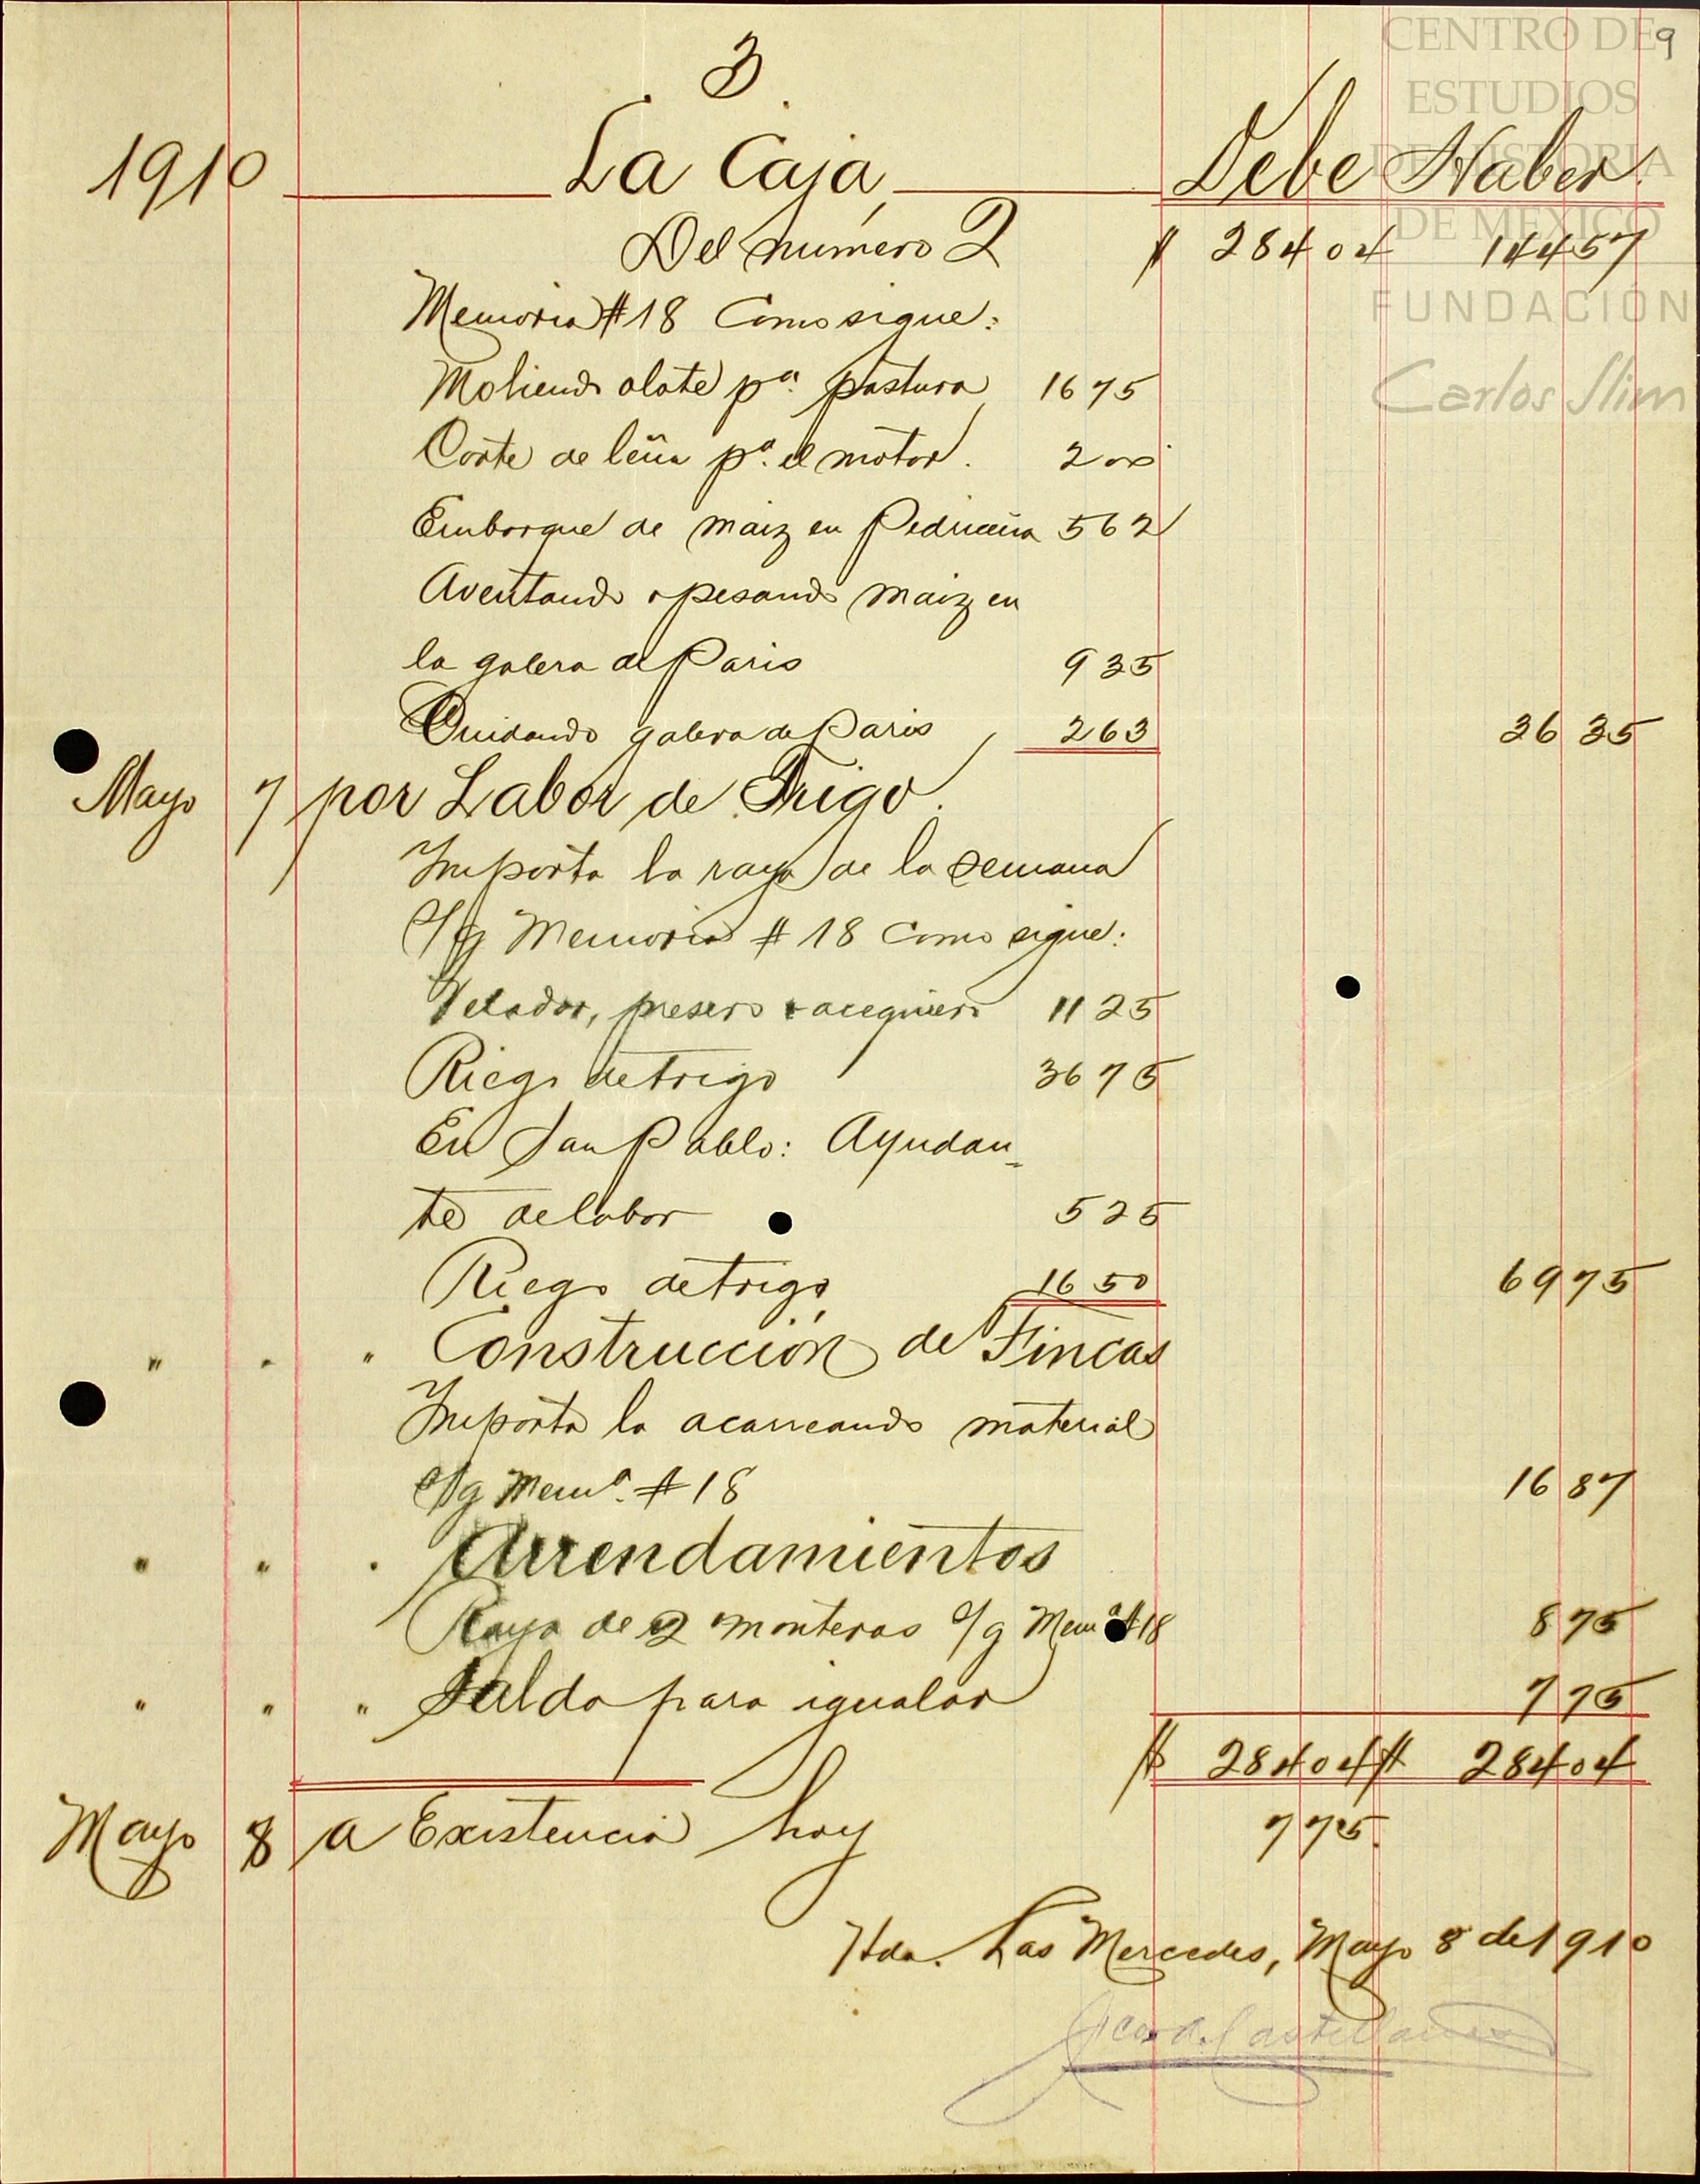 9
CENTRO DE
ESTUDIOS
DE HISTORIA
DE MÉXICO
FUNDACIÓN
Carlos Slim
3
1910 La Caja, Debe Haber.
Del número 2 $ 284 04 144 57
Memoria #18 Como sigue:
Moliendo olote pª. pastura 16 75
Corte de leña pª. el motor. 2 00
Embarque de maiz en Pedriceña 5 62
Aventando y pesando maiz en
la galera de Paris 9 35
Cuidando galera de Paris 2 63 36 35
Mayo 7 por Labor de Trigo.
Importa la raya de la semana
s/g Memoria #18 Como sigue:
Velador, presero y acequiero 11 25
Riego de trigo 36 75
En San Pablo: Ayudan-
te de labor 5 25
Riego de trigo 16 50 69 75
" " " Construcción de Fincas
Importa la acarreando material
s/g Memª. #18 16 87
" " " Arrendamientos
Raya de 2 monteros s/g Memª #18 8 75
" " " Saldo para igualar 7 75
$ 284 04 $ 284 04
Mayo 8 a Existencia hoy 7 75.
Hda. Las Mercedes, Mayo 8 de 1910
Castellanos